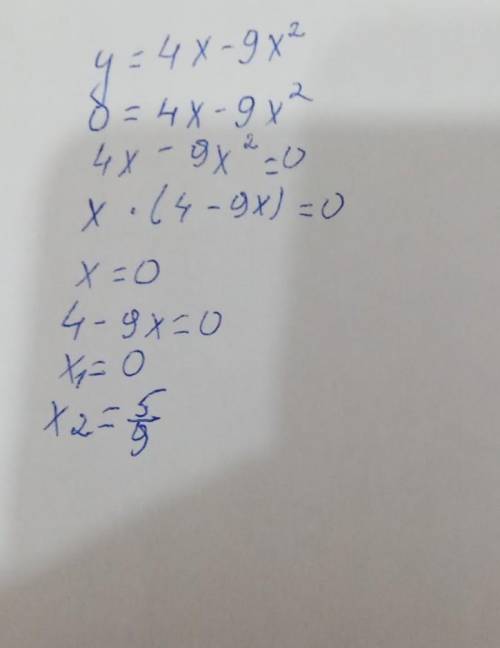 y = 4x - 9x²
0 = 4x - 9x²
4x - 9x² = 0
x · (4 - 9x) = 0
x = 0
4 - 9x = 0
x₁ = 0
x₂ = 5/9